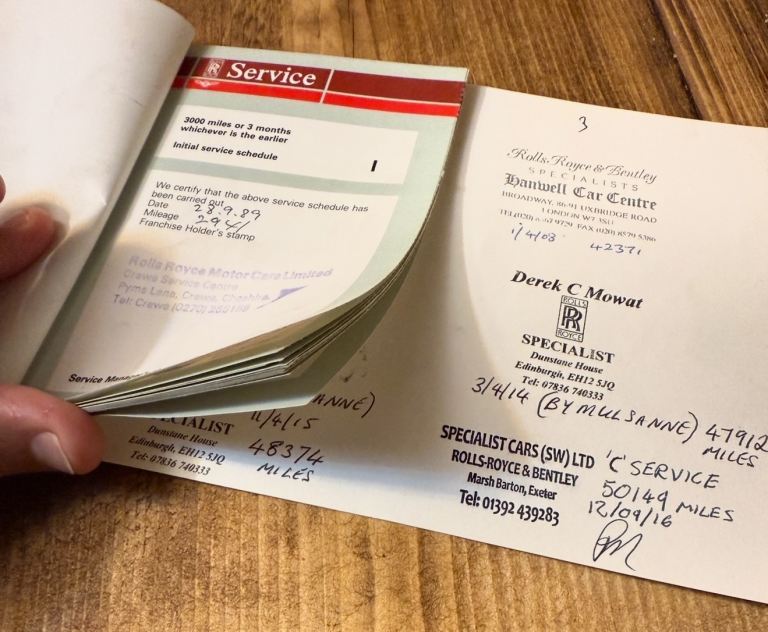 Service
3000 miles or 3 months
whichever is the earlier
Initial service schedule
1
We certify that the above service schedule has
been carried out
Date 28.9.89
Mileage 2941
Franchise Holder's stamp
Rolls Royce Motor Cars Limited
Crewe Service Centre
Pyms Lane, Crewe, Cheshire
Tel: Crewe (0270)
Service
3
Rolls-Royce & Bentley
SPECIALISTS
Hanwell Car Centre
BROADWAY, 86-91 UXBRIDGE ROAD
LONDON W7
TEL (020) 9729 FAX (020) 8579 5386
1/4/08 42371
Derek C Mowat
ROLLS
RR
ROYCE
SPECIALIST
Dunstane House
Edinburgh, EH12 5JQ
Tel: 07836 740333
3/4/14 (BY MULSANNE) 47912
MILES
SPECIALIST CARS (SW) LTD
ROLLS-ROYCE & BENTLEY
Marsh Barton, Exeter
Tel: 01392 439283
'C' SERVICE
50149 MILES
12/09/16
ANNE)
11/4/15
CIALIST
Dunstane House
Edinburgh, EH12 5JQ
Tel: 07836 740333
48374
MILES